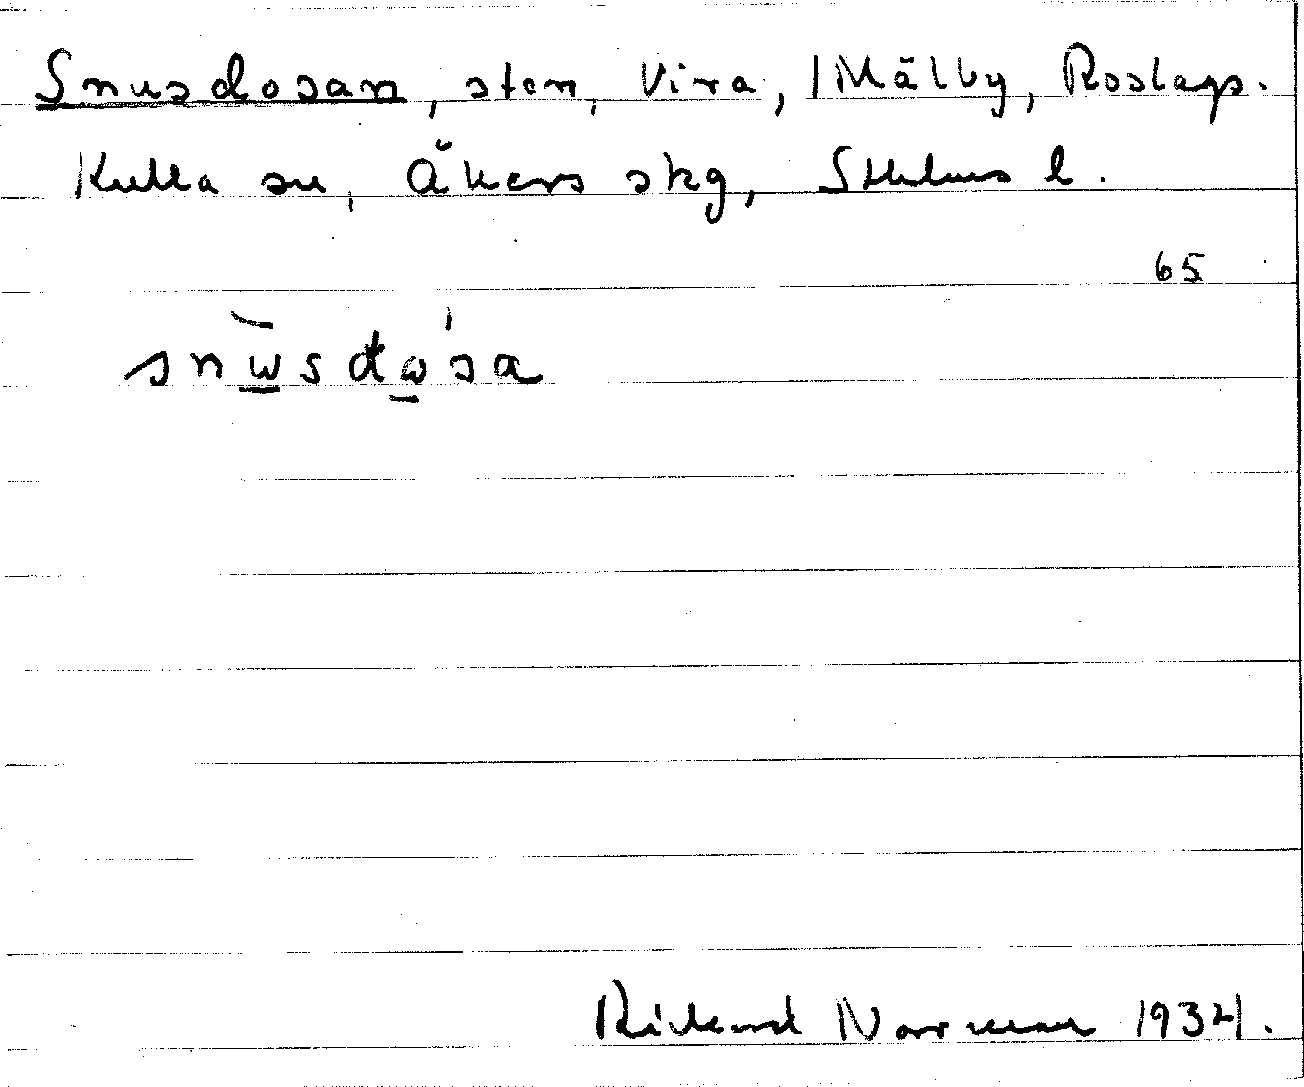 Snusdosan, sten, Vira, Mälby, Roslags.
Kulla sn, Åkers skg, Sthlms l.
65
snu̲sdω̲sa
Rikard Norrman 1934.